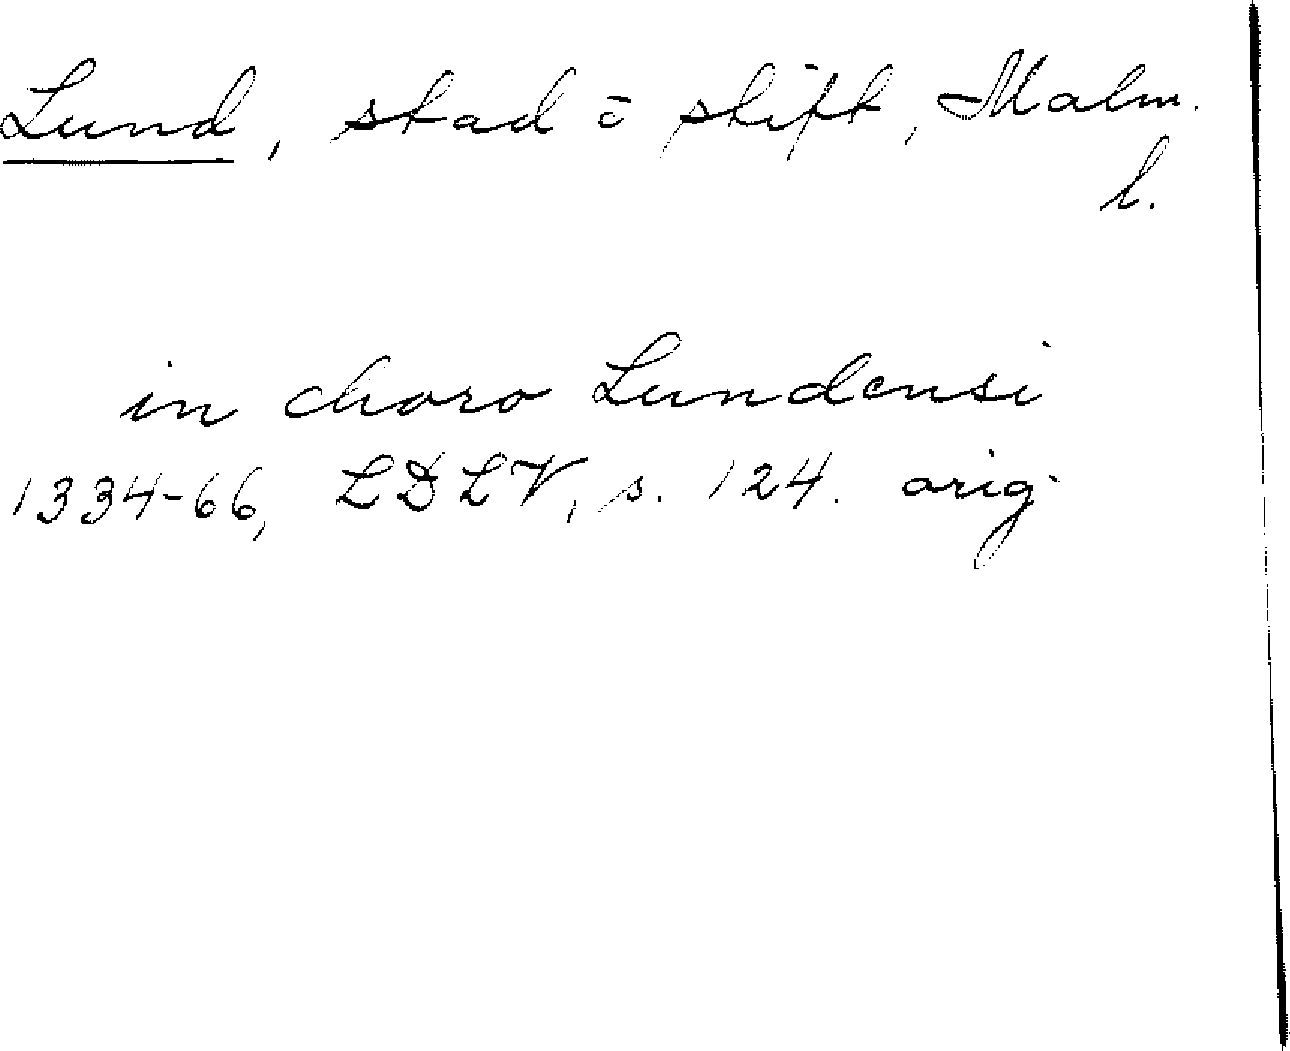 Lund, stad o skift, Malm.
l.
in choro Lundensi
1334-66, LDLV, s. 124. orig.